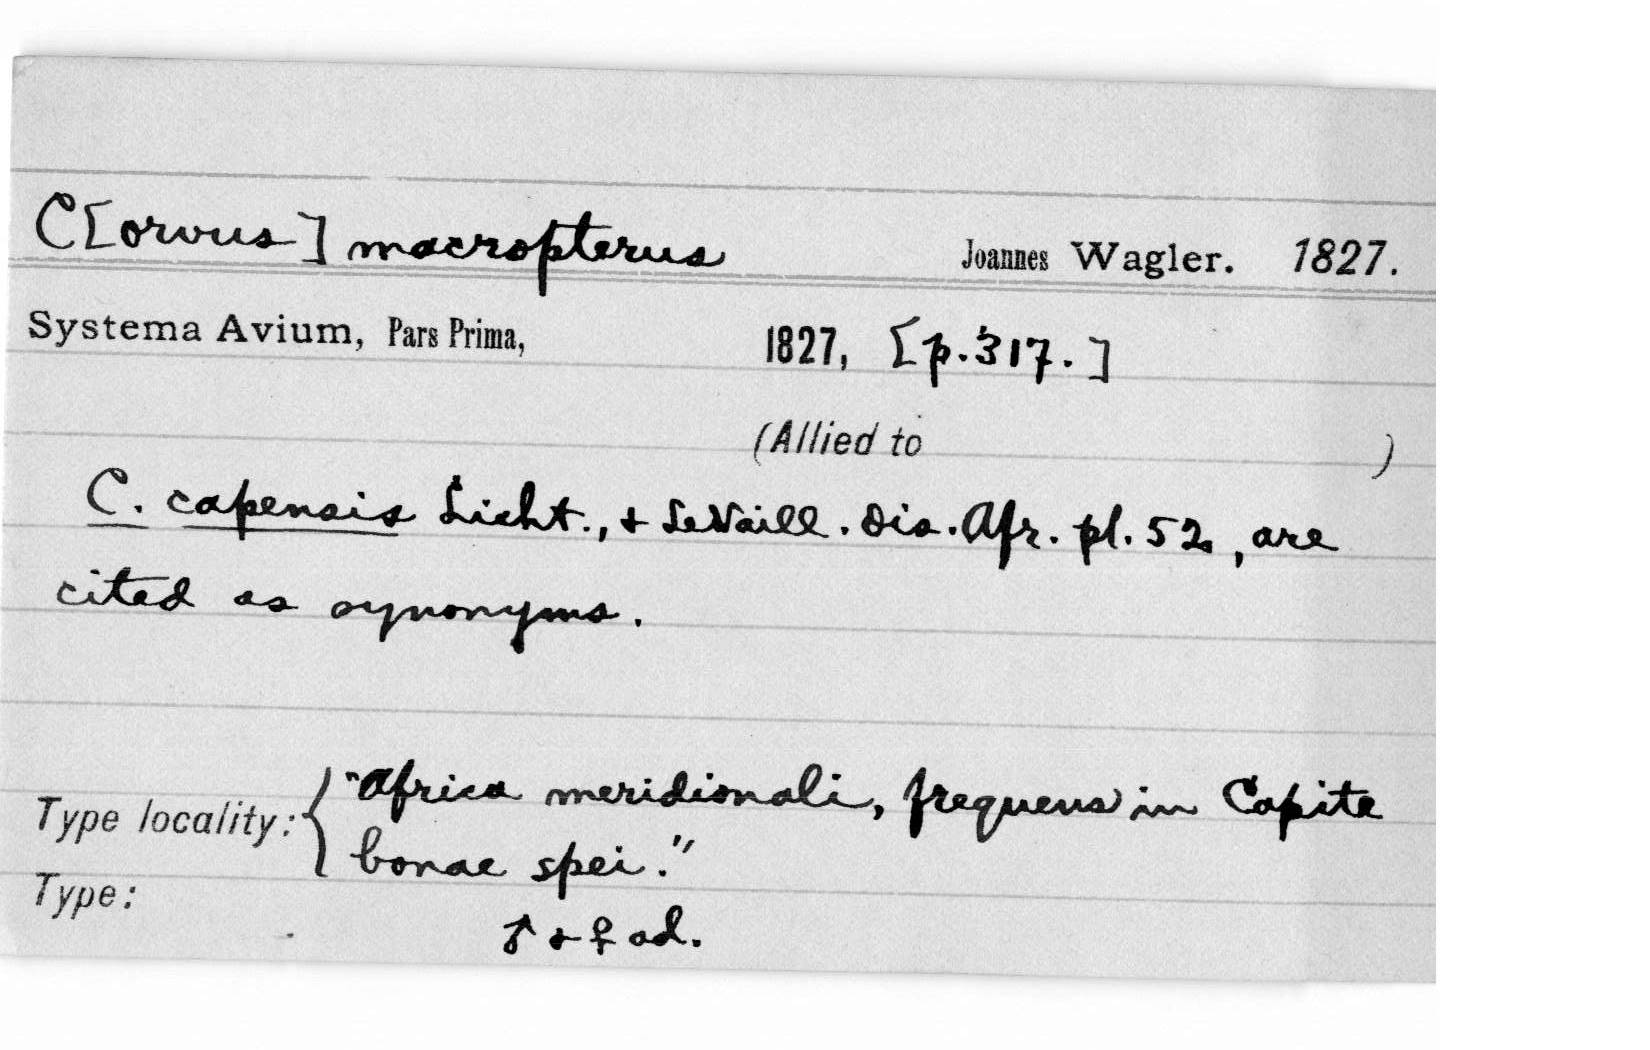 C[orvus] macropterus Joannes Wagler. 1827.
Systema Avium, Pars Prima, 1827, [p.317.]
(Allied to )
C. capensis Licht., & LeVaill. Ois. Afr. pl. 52, are
cited as synonyms.
Type locality: { "Africa meridionali, frequens in Capite
bonae spei."
Type:
♂ & ♀ ad.